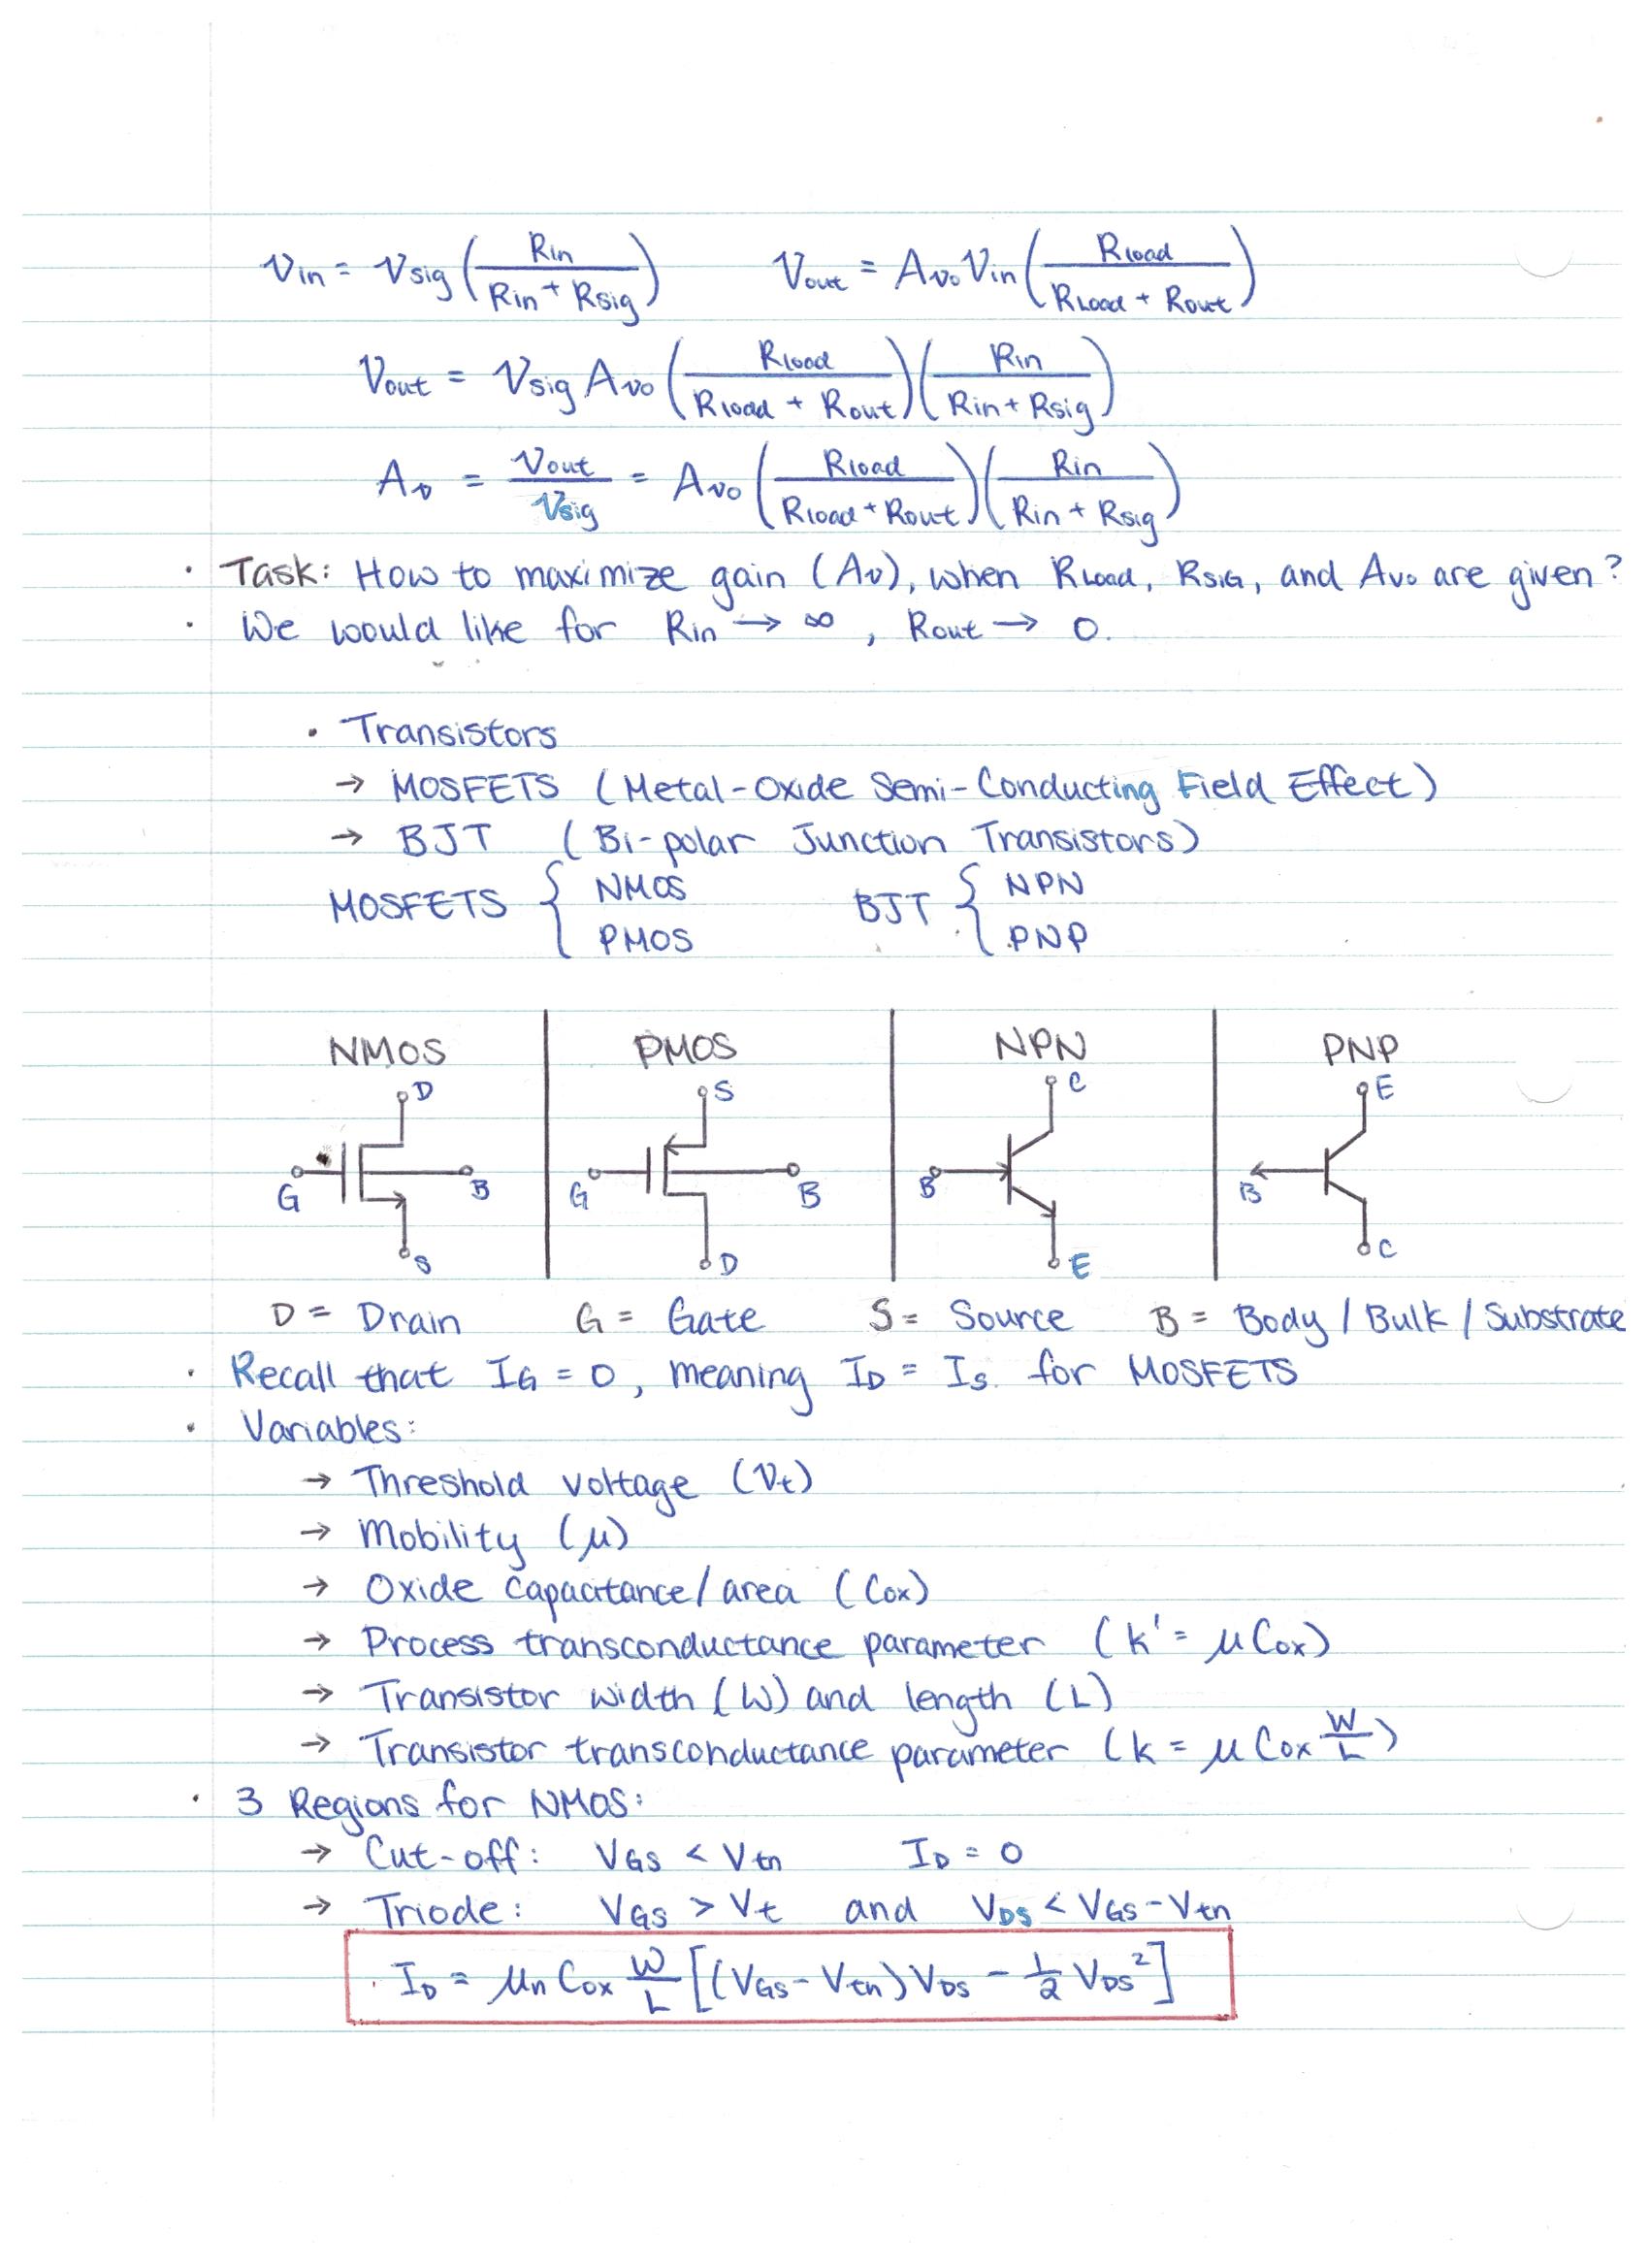 Vin = Vsig (Rin / (Rin + Rsig))    Vout = Avo Vin (Rload / (RLoad + Rout))
Vout = Vsig Avo (Rload / (Rload + Rout)) (Rin / (Rin + Rsig))
Av = Vout / Vsig = Avo (Rload / (Rload + Rout)) (Rin / (Rin + Rsig))
· Task: How to maximize gain (Av), when RLoad, RSIG, and Avo are given?
· We would like for Rin → ∞, Rout → 0.
· Transistors
→ MOSFETS (Metal-Oxide Semi-Conducting Field Effect)
→ BJT (Bi-polar Junction Transistors)
MOSFETS { NMOS    BJT { NPN
PMOS    PNP
NMOS    PMOS    NPN    PNP
D    S    C    E
G    B    G    B    B    B
S    D    E    C
D = Drain    G = Gate    S = Source    B = Body / Bulk / Substrate
· Recall that IG = 0, meaning ID = Is. for MOSFETS
· Variables:
→ Threshold voltage (Vt)
→ Mobility (μ)
→ Oxide Capacitance/area (Cox)
→ Process transconductance parameter (k' = μCox)
→ Transistor width (W) and length (L)
→ Transistor transconductance parameter (k = μCox W/L)
· 3 Regions for NMOS:
→ Cut-off: VGS < Vtn    ID = 0
→ Triode: VGS > Vt and VDS < VGS - Vtn
· ID = μn Cox W/L [(VGS - Vtn) VDS - 1/2 VDS²]